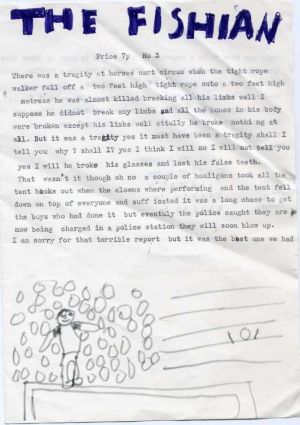 THE FISHIAN
Price 7p No 3
There was a tragity at horses cart circus when the tight rope
walker fell off a two feet high tight rope onto a two feet high
matress he was almost killed breacking all his limbs well I
suppose he didnot break any limbs and all the bones in his body
were broken except his limbs well actully he broke nothing at
all. But it was a tragity yes it must have been a tragity shall I
tell you why ? shall I? yes I think I will no I will not tell you
yes I will he broke his glasses and lost his false teeth.
That wasn't it though oh no a couple of hooligans took all the
tent hooks out when the clowns where performing and the tent fell
down on top of everyone and suff icated it was a long chase to get
the boys who had done it but eventuly the police caught they are
now being charged in a police station they will soon blow up.
I am sorry for that terrible report but it was the best one we had